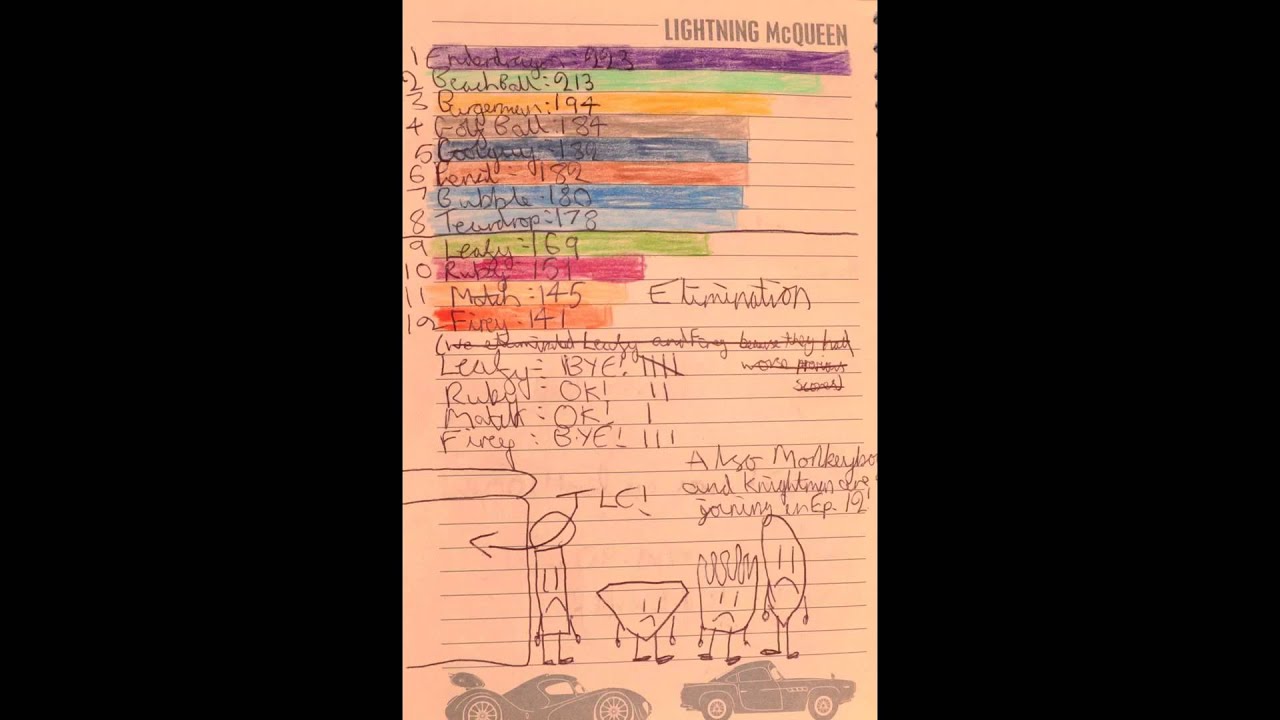 LIGHTNING McQUEEN
1 Enderdragon: 223
2 BeachBall: 213
3 Burgerman: 194
4 Golf Ball: 184
5 182
6 Pencil: 182
7 Bubble: 180
8 Teardrop: 178
9 Leafy: 169
10 Ruby: 151
11 Match: 145
12 Firey: 141
Elimination
(We eliminated Leafy and Firey because they had
worse previous
scores)
Leafy: BYE!
Ruby: OK!
Match: OK!
Firey: BYE!
Also Monkeybo
and Knightman are
joining in Ep. 12!
TLC!